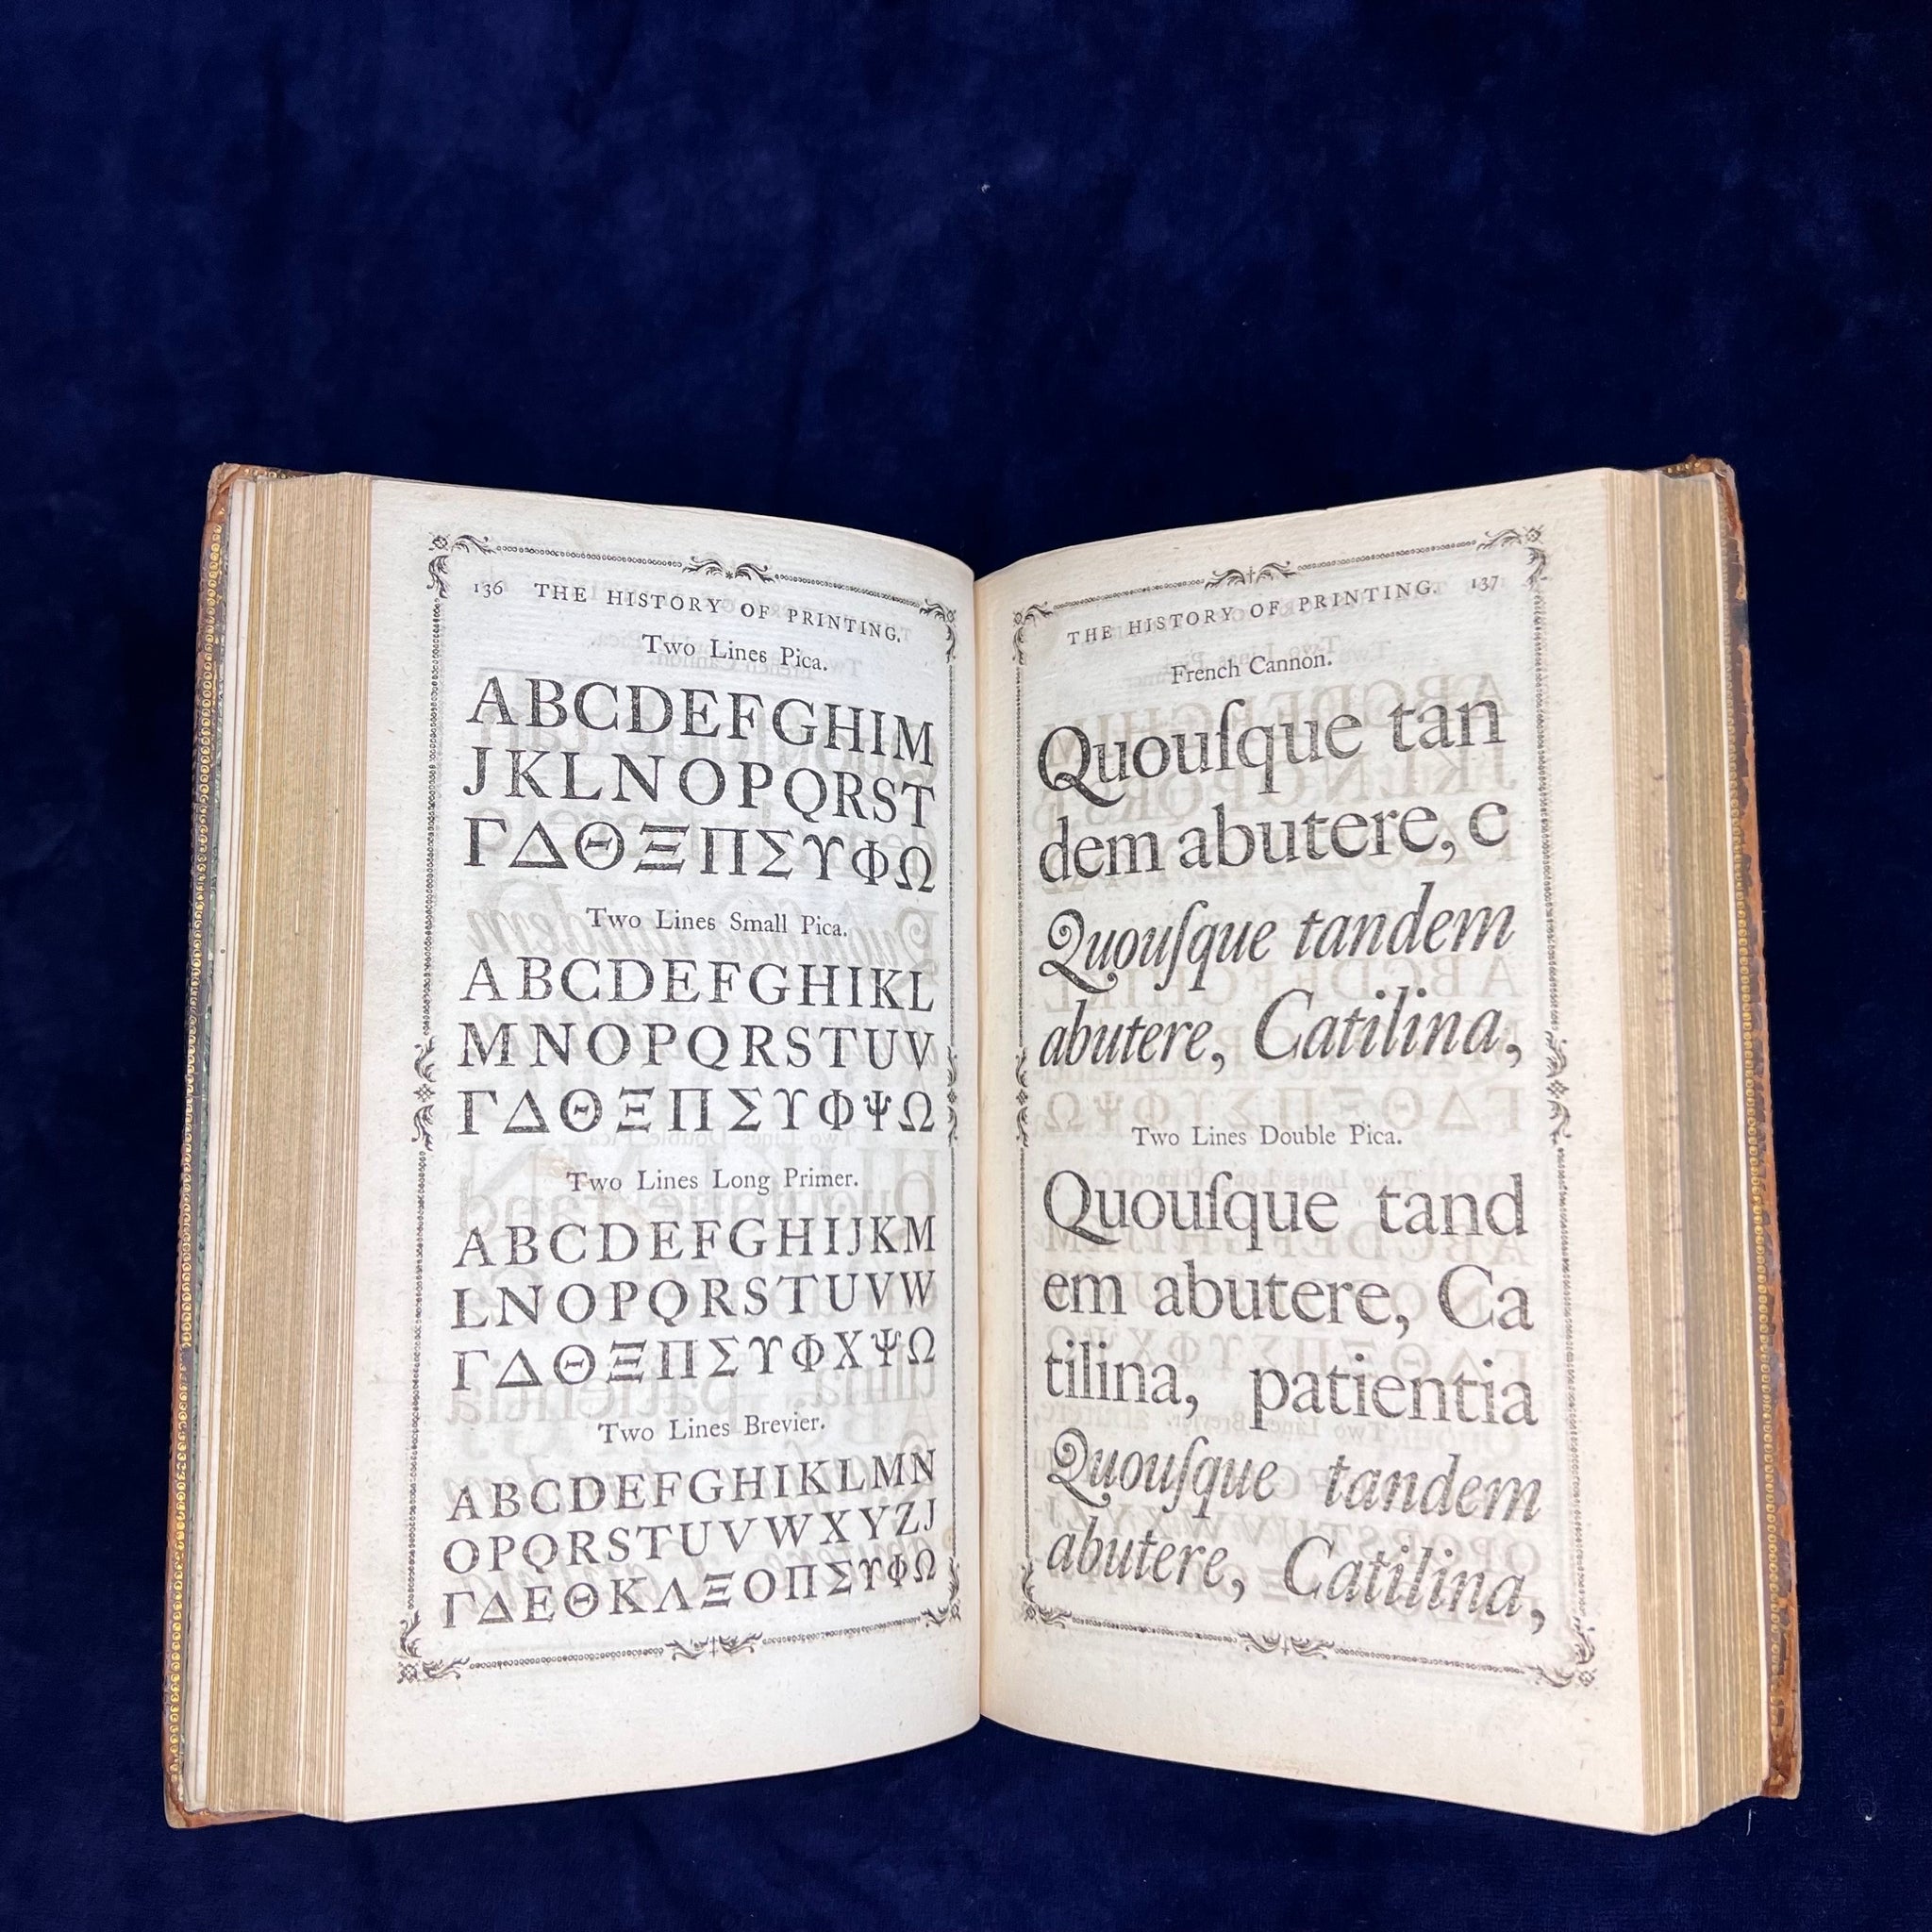 136 THE HISTORY OF PRINTING.
Two Lines Pica.
ABCDEFGHIM
JKLNOPQRST
ΓΔΘΞΠΣΥΦΩ
Two Lines Small Pica.
ABCDEFGHIKL
MNOPQRSTUV
ΓΔΘΞΠΣΥΦΨΩ
Two Lines Long Primer.
ABCDEFGHIJKM
LNOPQRSTUVW
ΓΔΘΞΠΣΥΦΧΨΩ
Two Lines Brevier.
ABCDEFGHIKLMN
OPQRSTUVWXYZJ
ΓΔΕΘΚΛΞΟΠΣΥΦΩ
THE HISTORY OF PRINTING. 137
French Cannon.
Quouſque tan
dem abutere, c
Quouſque tandem
abutere, Catilina,
Two Lines Double Pica.
Quouſque tand
em abutere, Ca
tilina, patientia
Quouſque tandem
abutere, Catilina,